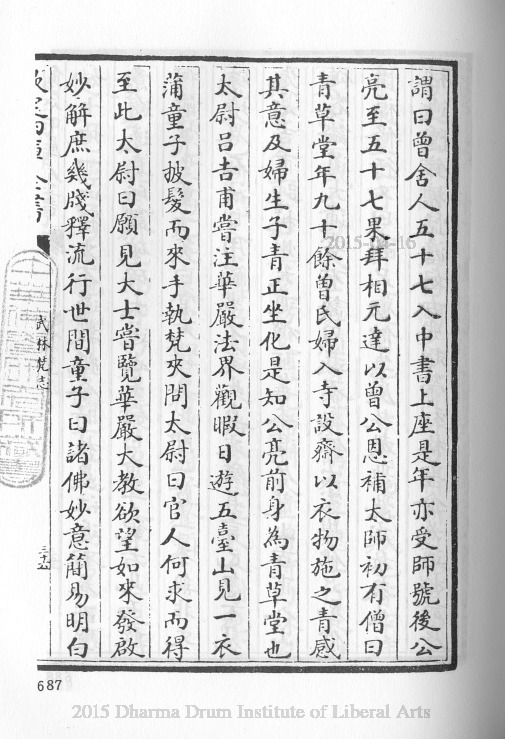 謂曰曾舍人五十七入中書上座是年亦受師號後公
亮至五十七果拜相元達以曾公恩補太師初有僧曰
青草堂年九十餘曾氏婦入寺設齋以衣物施之青感
其意及婦生子青正坐化是知公亮前身為青草堂也
太尉呂吉甫嘗注華嚴法界觀暇日遊五臺山見一衣
蒲童子披髮而來手執梵夾問太尉曰官人何求而得
至此太尉曰願見大士嘗覽華嚴大教欲望如來發啟
妙解庶幾牋釋流行世間童子曰諸佛妙意簡易明白
欽定四庫全書
武林梵志
三十五
687
2015 Dharma Drum Institute of Liberal Arts